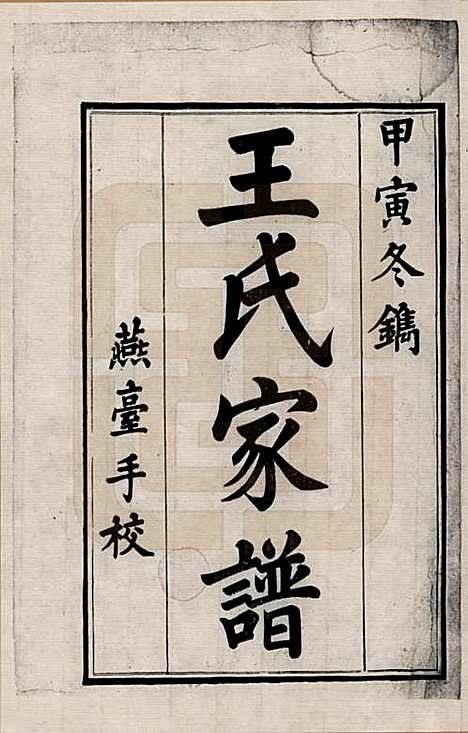 甲寅冬鐫
王氏家譜
燕臺手校